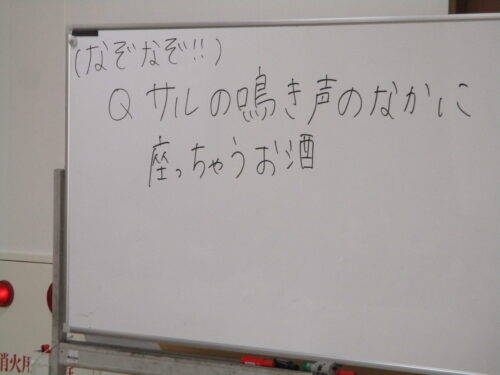 (なぞなぞ!!)
Q サルの鳴き声のなかに
座っちゃうお酒
消火